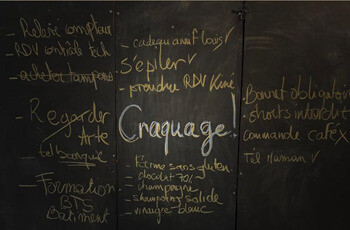 - Relevé compteur
- RDV contrôle tech
- acheter tampons
- Regarder
Arte
tel banque
- Formation
BTS
Batiment
- cadeau annif Louis ✓
S'épiler ✓
- prendre RDV Kiné
Craquage!
- Farine sans gluten
- chocolat 70%
- champagne
- shampoing solide
- vinaigre blanc
Bonnet obligatoire
- shorts interdit
commande café x
Tel Maman ✓